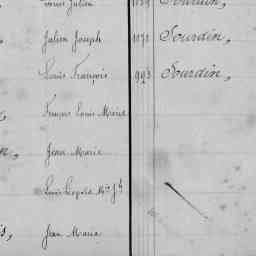 Louis Julien Jourdin,
Julien Joseph 1171 Jourdin,
Louis François 993 Jourdin,
François Louis Marie
Jean Marie
Louis Léopold Mie Jh
Jean Marie